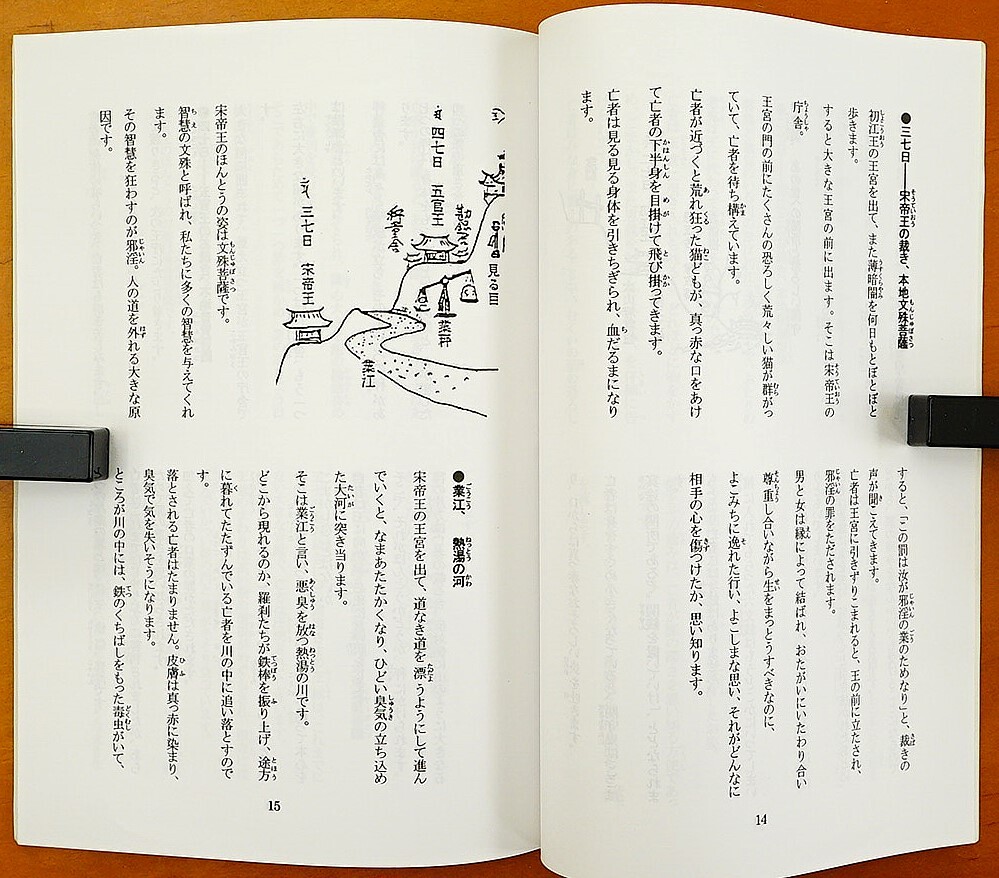 ●三七日――宋帝王の裁き、本地文殊菩薩
初江王の王宮を出て、また薄暗闇を何日もとぼとぼと
歩きます。
すると大きな王宮の前に出ます。そこは宋帝王の
庁舎。
王宮の門の前にたくさんの恐ろしく荒々しい猫が群がっ
ていて、亡者を待ち構えています。
亡者が近づくと荒れ狂った猫どもが、真っ赤な口をあけ
て亡者の下半身を目掛けて飛び掛ってきます。
亡者は見る見る身体を引きちぎられ、血だるまになり
ます。
すると、「この罰は汝が邪淫の業のためなり」と、裁きの
声が聞こえてきます。
亡者は王宮に引きずりこまれると、王の前に立たされ、
邪淫の罪をただされます。
男と女は縁によって結ばれ、おたがいにいたわり合い
尊重し合いながら生をまっとうすべきなのに、
よこみちに逸れた行い、よこしまな思い、それがどんなに
相手の心を傷つけたか、思い知ります。
14
見る目
業秤
四七日 五官王
業江
三七日 宋帝王
宋帝王のほんとうの姿は文殊菩薩です。
智慧の文殊と呼ばれ、私たちに多くの智慧を与えてくれ
ます。
その智慧を狂わすのが邪淫。人の道を外れる大きな原
因です。
●業江、熱湯の河
宋帝王の王宮を出て、道なき道を漂うようにして進ん
でいくと、なまあたたかくなり、ひどい臭気の立ち込め
た大河に突き当ります。
そこは業江と言い、悪臭を放つ熱湯の川です。
どこから現れるのか、羅刹たちが鉄棒を振り上げ、途方
に暮れてたたずんでいる亡者を川の中に追い落とすので
す。
落とされる亡者はたまりません。皮膚は真っ赤に染まり、
臭気で気を失いそうになります。
ところが川の中には、鉄のくちばしをもった毒虫がいて、
15